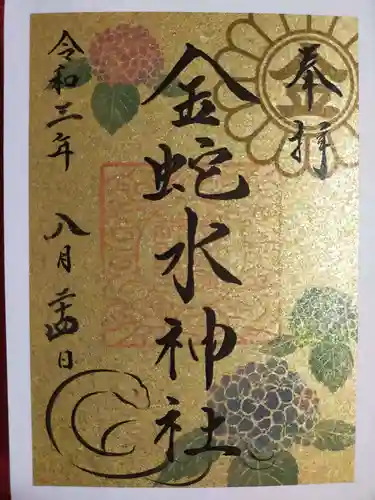 奉拝
金蛇水神社
令和三年
八月廿四日